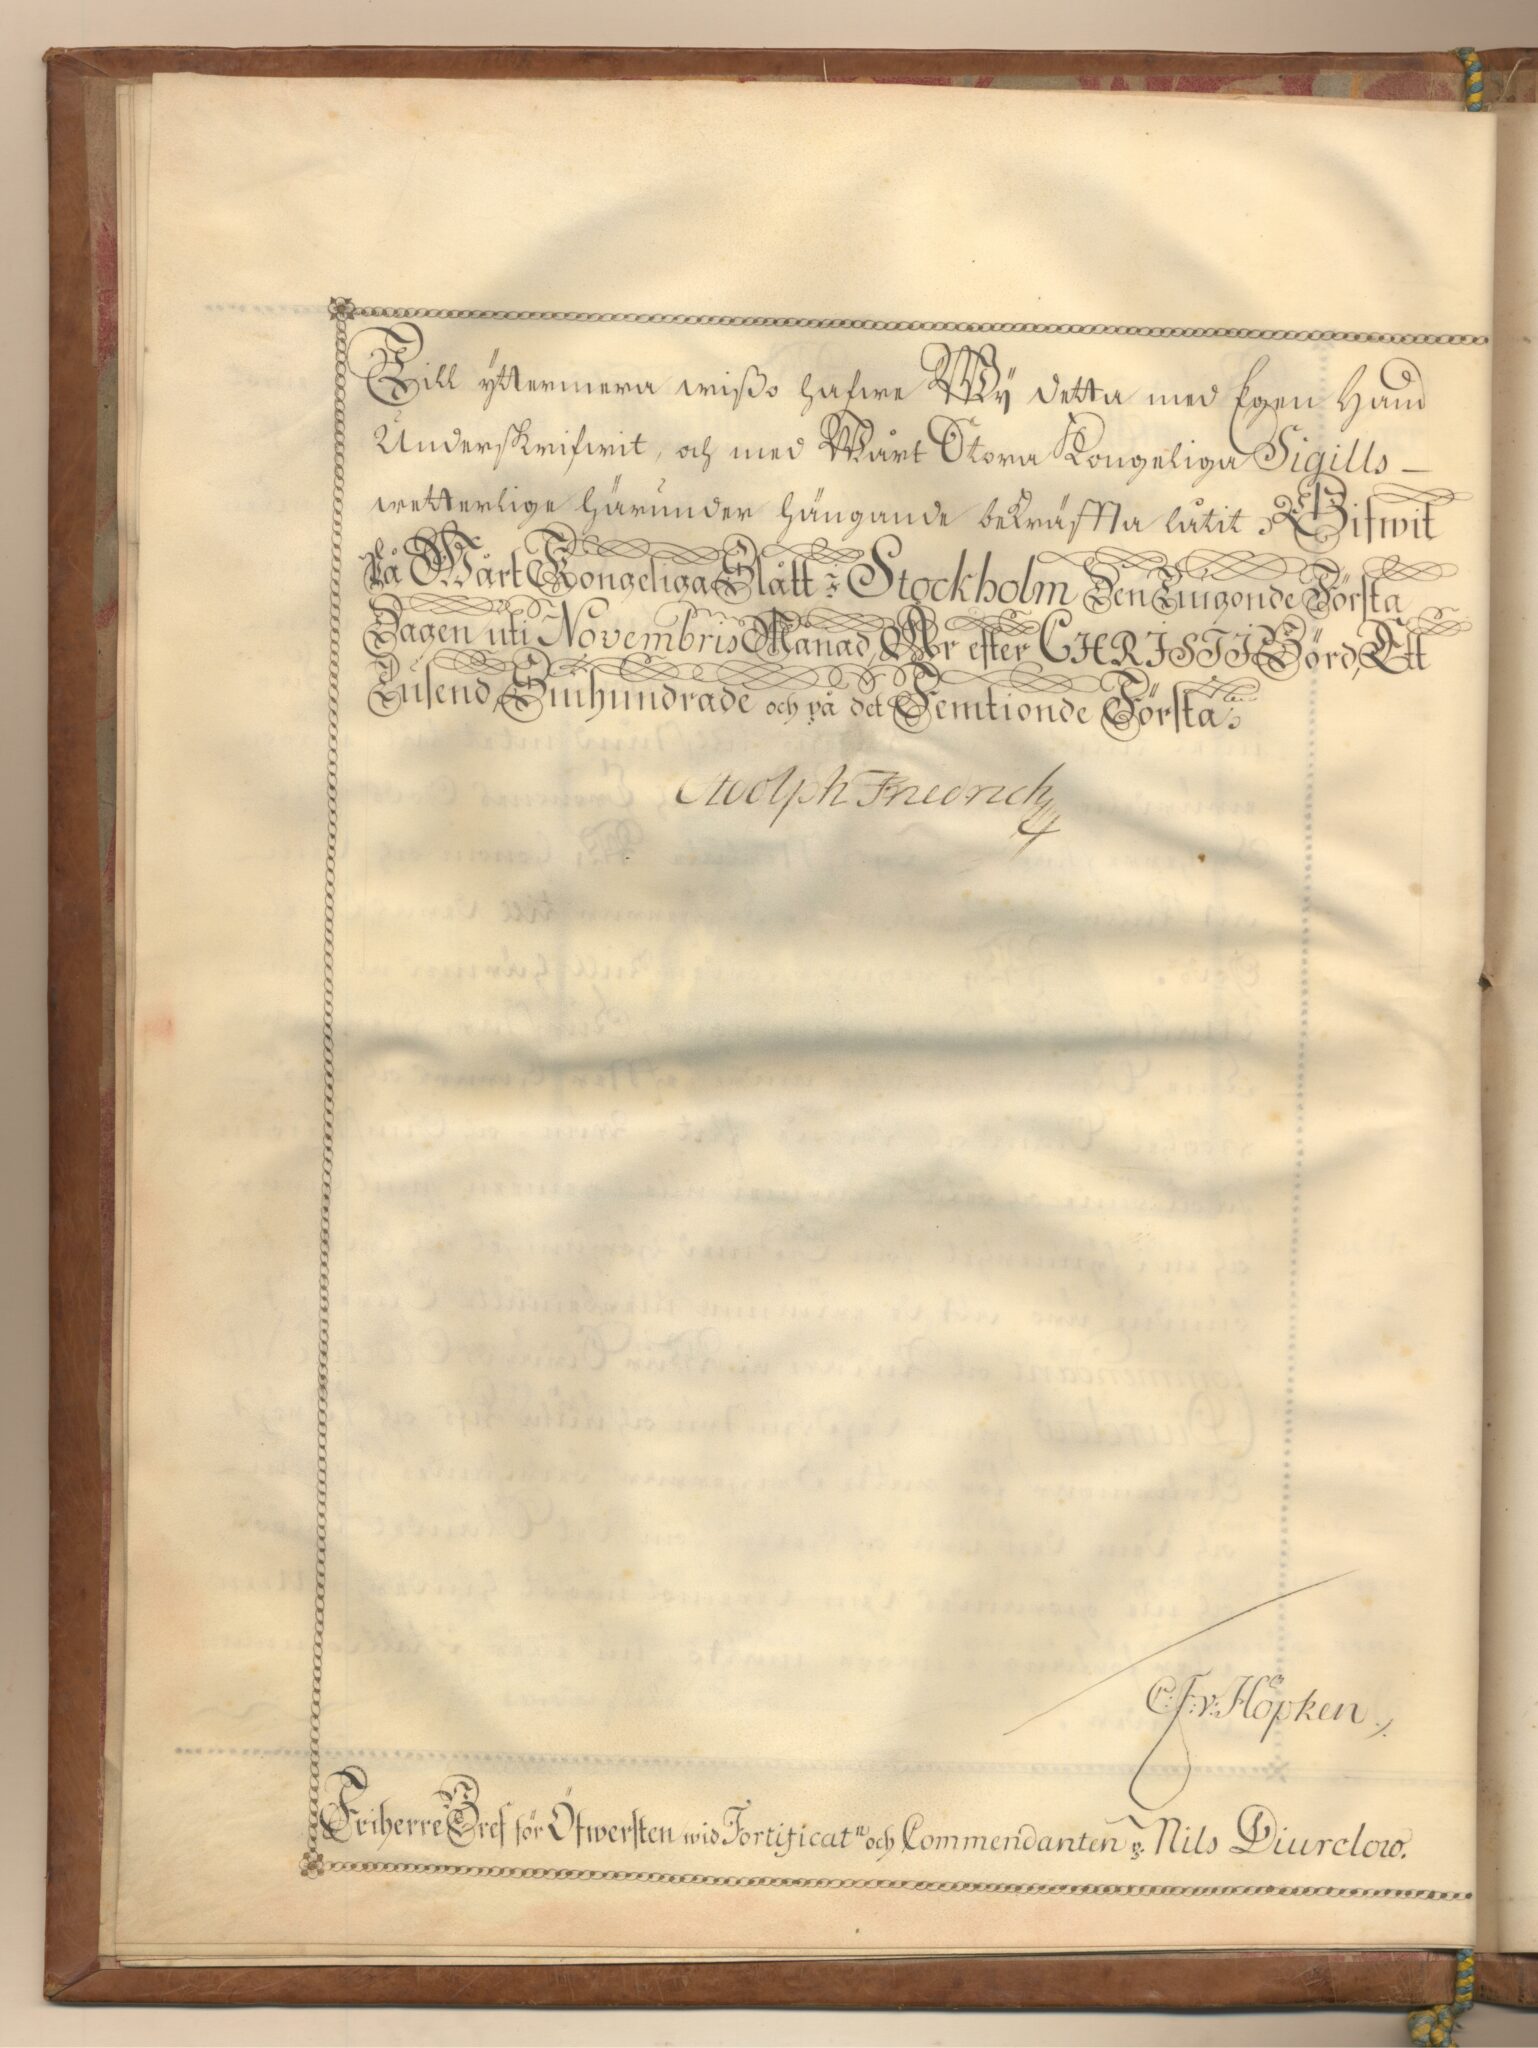 Till yttermera wißo hafwe Wÿ detta med Egen Hand
Underskrifwit, och med Wårt Stora Kongeliga Sigills
wetterlige härunder hängande bekräffta låtit. Gifwit
På Wårt Kongeliga Slått i Stockholm Den Tiugonde Första
Dagen uti Novembris Månad, Åhr efter CHRISTI Börd, Ett
Tusend, Siuhundrade och på det Femtionde Första.
Adolph Friedrich
C:F:v: Höpken
Friherre Bref för Öfwersten wid Fortificatn och Commendanten Nils Diurclow.